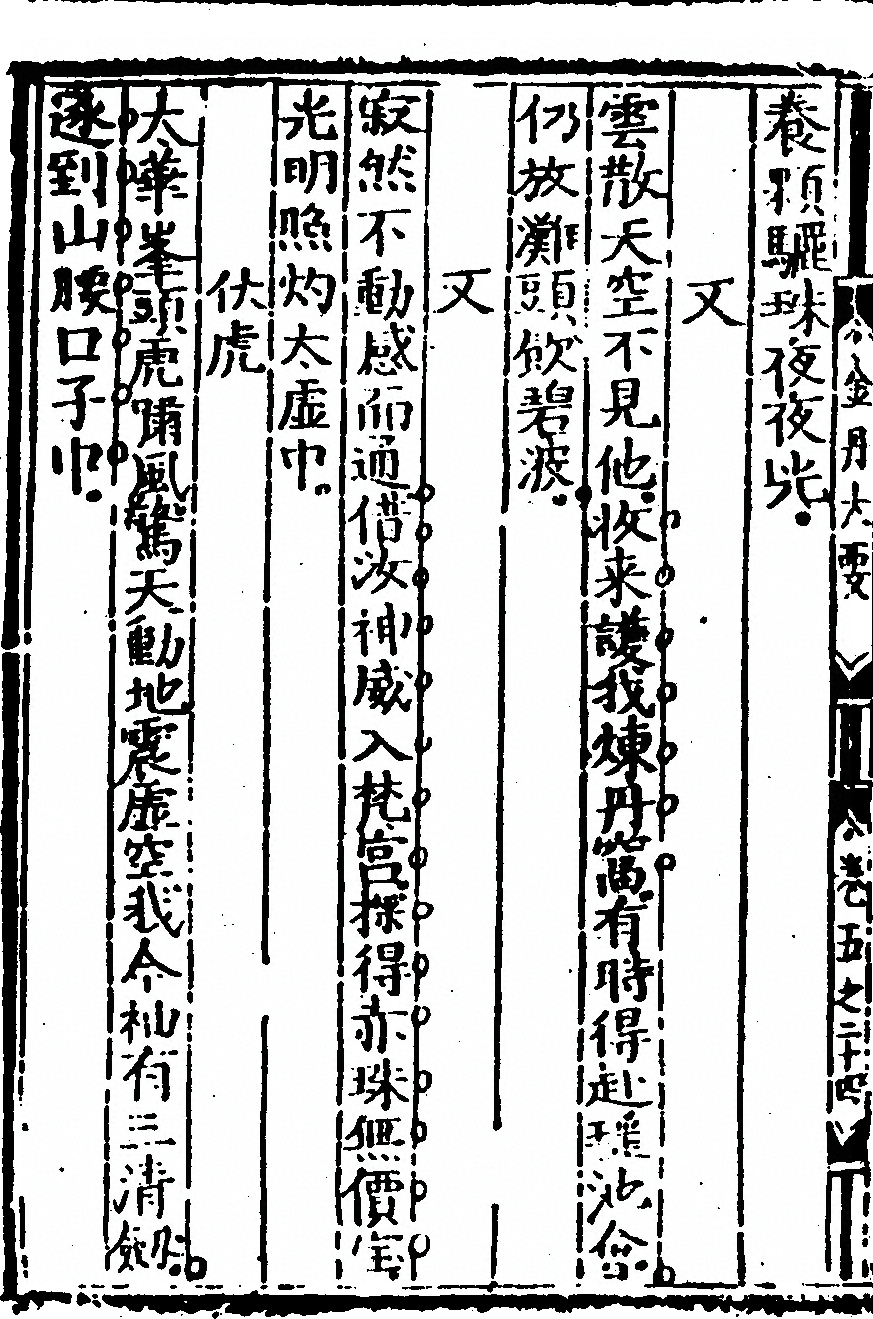 養顆驪珠夜夜光
又
雲散天空不見他收来護我煉丹窩有時得赴瑤池會
仍放灘頭飲碧波
又
寂然不動感而通借汝神威入梵宫探得赤珠無價宝
光明照灼太虛中
伏虎
太華峯頭虎嘯風驚天動地震虛空我今袖有三清劔
逐到山腰口子中
金丹大要
卷五之二十四